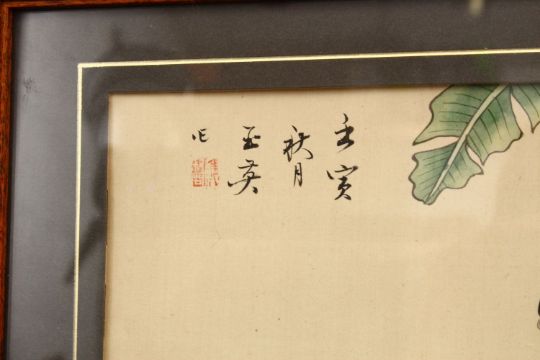 壬寅
秋月
玉英
作